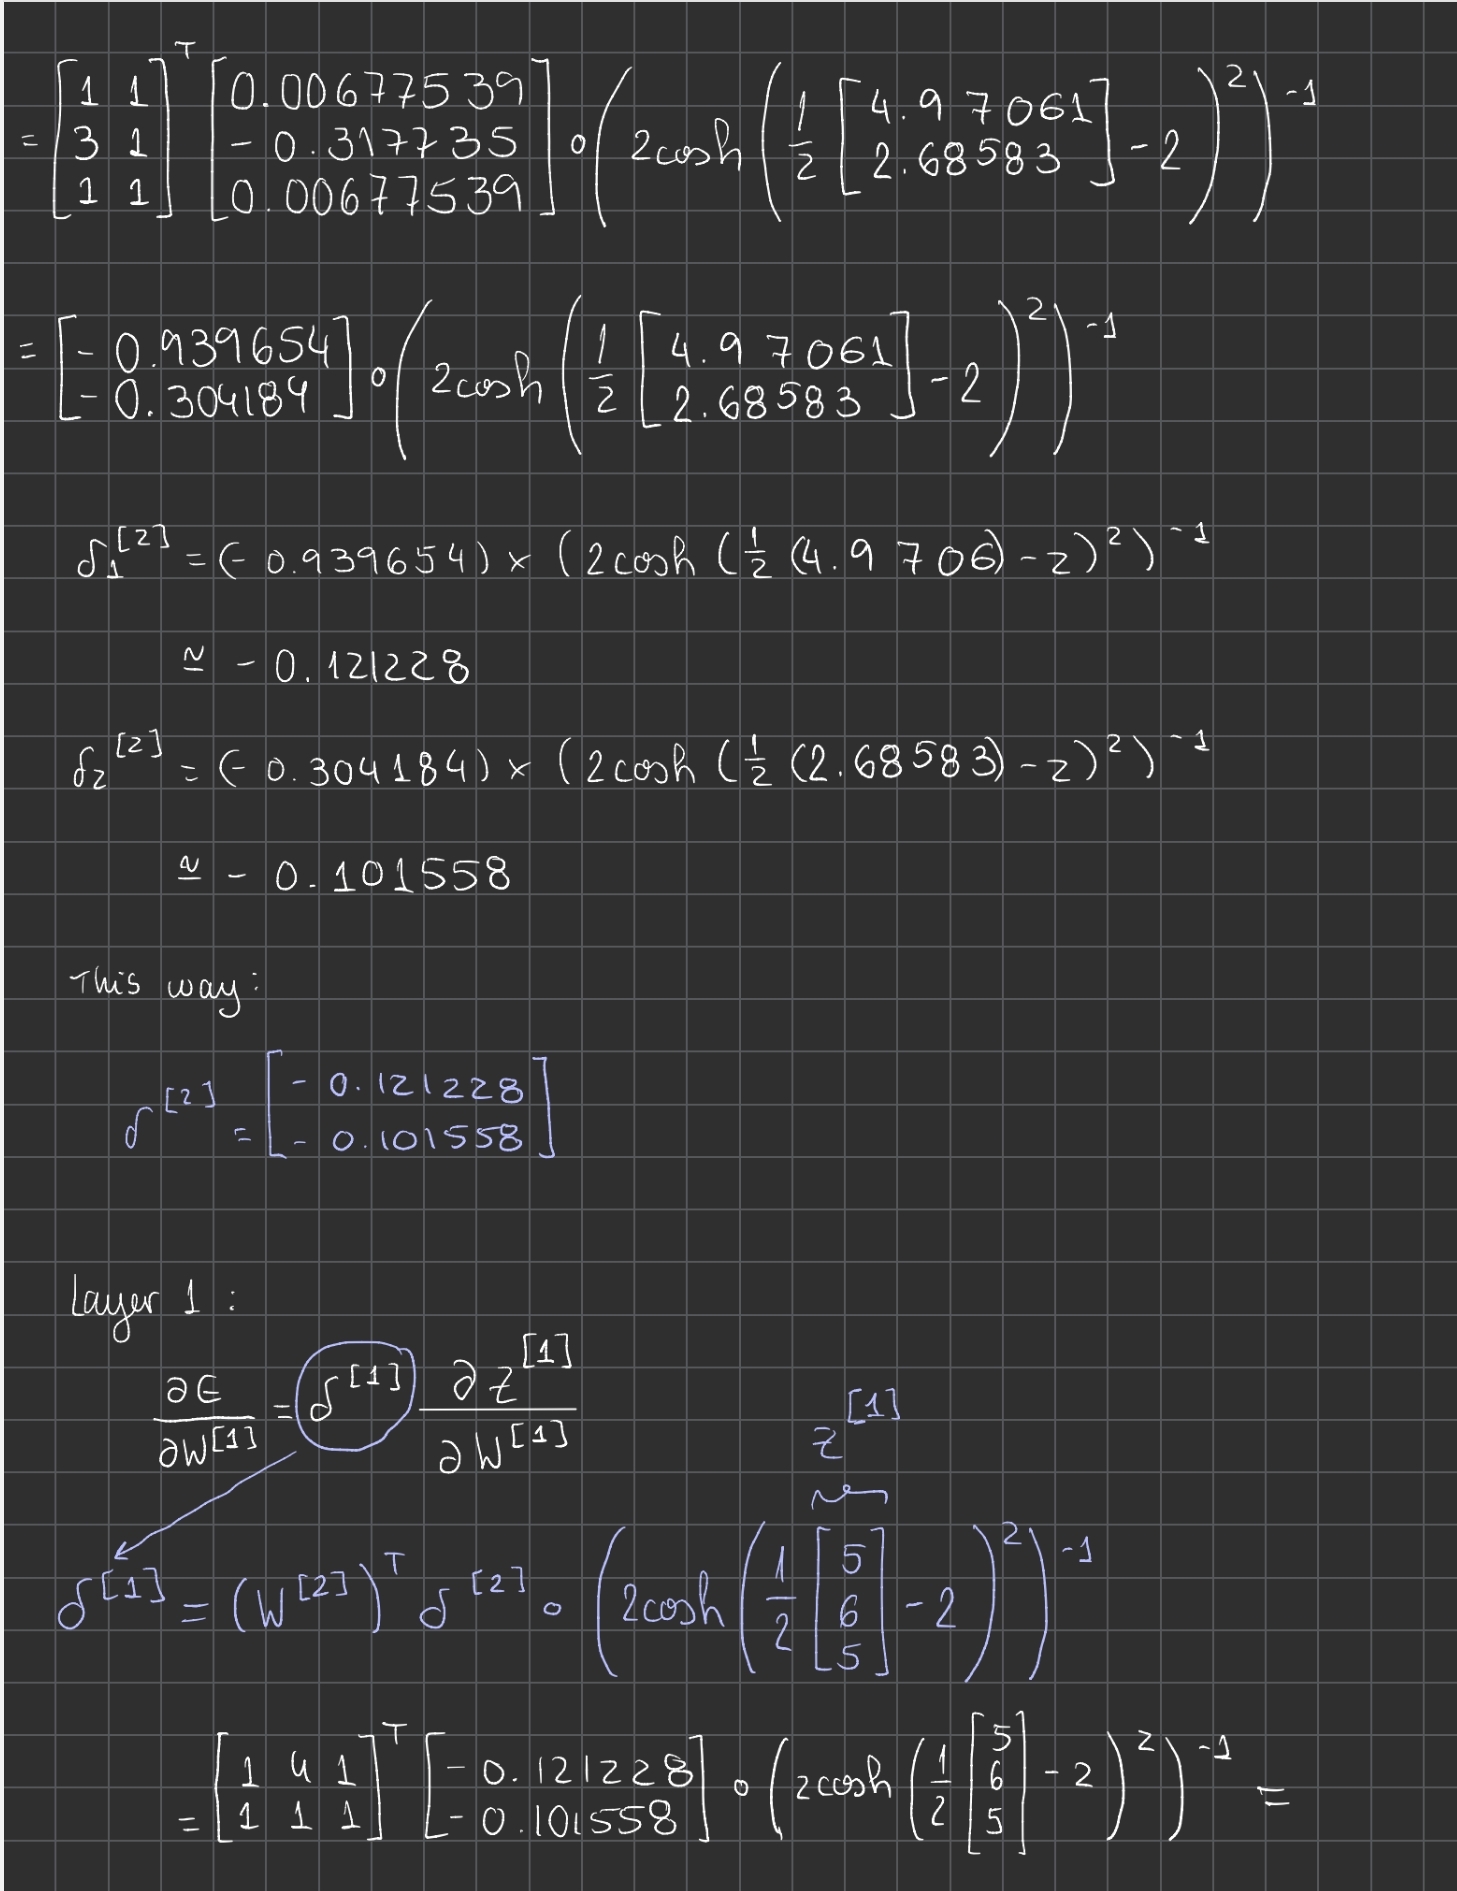 = [1 1; 3 1; 1 1]^T [0.00677539; -0.317735; 0.00677539] ∘ (2cosh(1/2 [4.97061; 2.68583] - 2)^2)^-1
= [-0.939654; -0.304184] ∘ (2cosh(1/2 [4.97061; 2.68583] - 2)^2)^-1
δ_1^[2] = (-0.939654) × (2cosh(1/2 (4.9706) - 2)^2)^-1
≃ -0.121228
δ_2^[2] = (-0.304184) × (2cosh(1/2 (2.68583) - 2)^2)^-1
≃ -0.101558
This way:
δ^[2] = [-0.121228; -0.101558]
Layer 1:
∂E/∂W^[1] = δ^[1] ∂z^[1]/∂W^[1]
z^[1]
δ^[1] = (W^[2])^T δ^[2] ∘ (2cosh(1/2 [5; 6; 5] - 2)^2)^-1
= [1 4 1; 1 1 1]^T [-0.121228; -0.101558] ∘ (2cosh(1/2 [5; 6; 5] - 2)^2)^-1 =